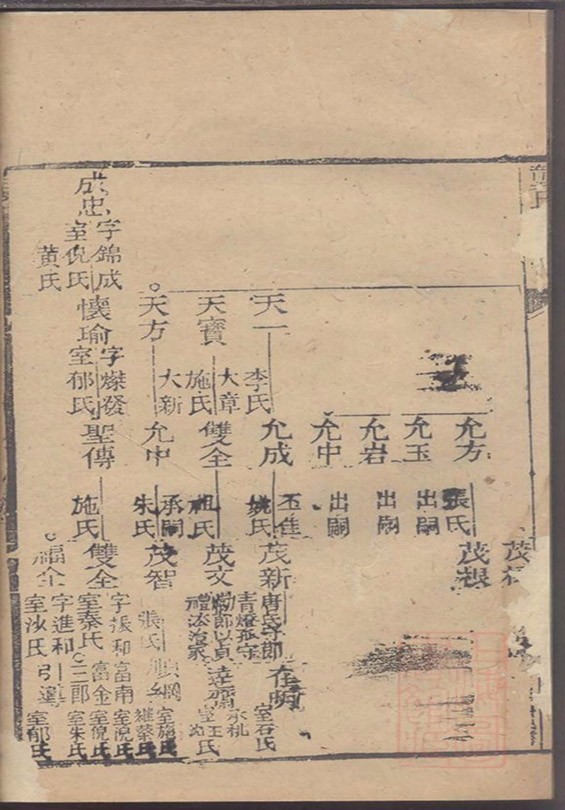 允方
張氏
茂根
允玉
出嗣
允岩
出嗣
允中
出嗣
天一
李氏
允成
姚氏
茂新
唐氏守節
青燈孤守
在明
室石氏
承祧
天寶
大章
施氏
雙全
祖氏
茂文
勵節以貞
達齋
室王氏
天方
大新
允中
承嗣
朱氏
茂智
張氏
順綱
室施氏
成忠
字錦成
室倪氏
黃氏
懷瑜
字燦發
室郁氏
聖傳
施氏
雙全
字振和
室秦氏
富南
富金
二郎
室倪氏
室倪氏
室朱氏
福全
字進和
室沙氏
引運
室郁氏